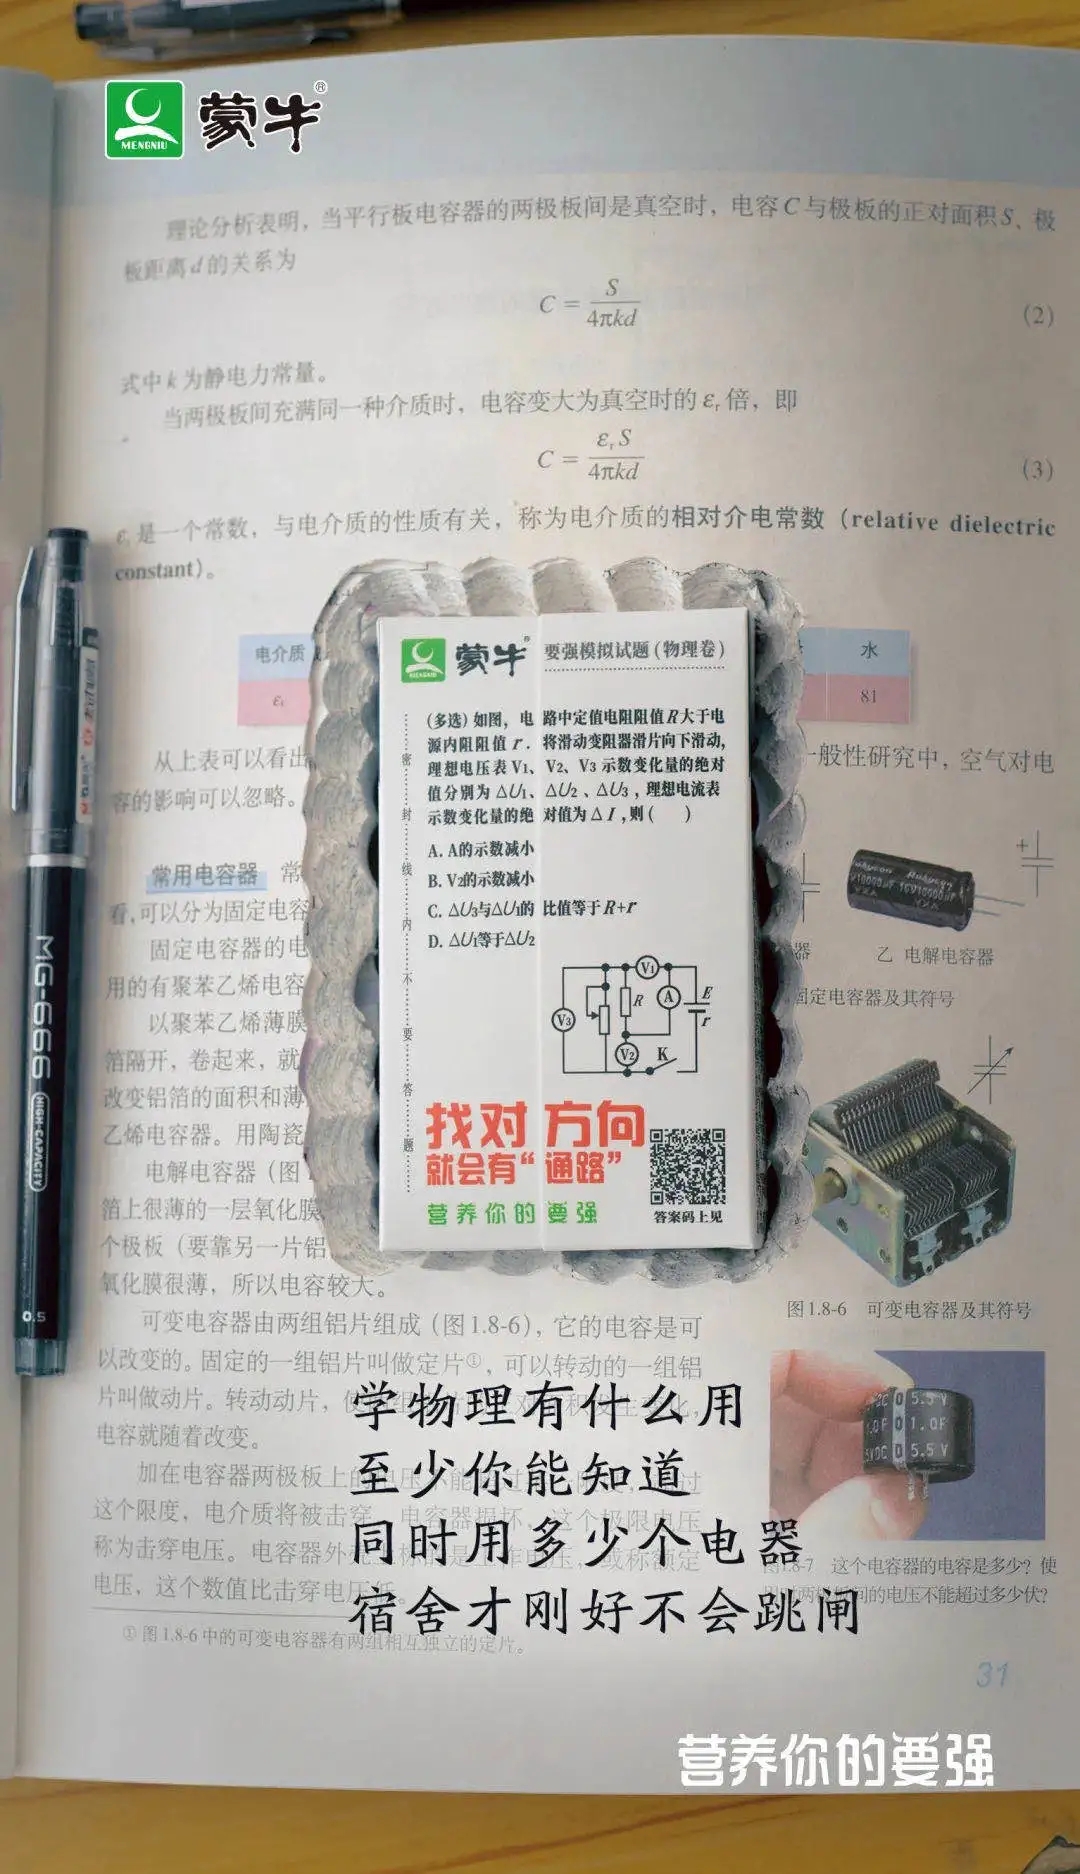 MENGNIU 蒙牛®
理论分析表明，当平行板电容器的两极板间是真空时，电容C与极板的正对面积S、极
板距离d的关系为
C = S/4πkd (2)
式中k为静电力常量。
当两极板间充满同一种介质时，电容变大为真空时的εr倍，即
C = εrS/4πkd (3)
εr是一个常数，与电介质的性质有关，称为电介质的相对介电常数（relative dielectric
constant）。
电介质
水
εr
81
从上表可以看出
一般性研究中，空气对电
容的影响可以忽略。
常用电容器 常
看，可以分为固定电容
固定电容器的电
用的有聚苯乙烯电容
以聚苯乙烯薄膜
箔隔开，卷起来，就
改变铝箔的面积和薄
乙烯电容器。用陶瓷
电解电容器（图
箔上很薄的一层氧化膜
个极板（要靠另一片铝
氧化膜很薄，所以电容较大。
可变电容器由两组铝片组成（图1.8-6），它的电容是可
以改变的。固定的一组铝片叫做定片①，可以转动的一组铝
片叫做动片。转动动片，
电容就随着改变。
加在电容器两极板上
这个限度，电介质将被击穿，电容器损坏，这个极限电压
称为击穿电压。电容器外
电压，这个数值比击穿电压
①图1.8-6中的可变电容器有两组相互独立的定片。
器
乙 电解电容器
固定电容器及其符号
图1.8-6 可变电容器及其符号
5.5 V
1.0F
5.5 V
图1.8-7 这个电容器的电容是多少？使
两极板间的电压不能超过多少伏？
31
MG-666
HIGH-CAPACITY
0.5
MENGNIU 蒙牛® 要强模拟试题（物理卷）
密封线内不要答题
（多选）如图，电路中定值电阻阻值R大于电
源内阻阻值r．将滑动变阻器滑片向下滑动，
理想电压表V1、V2、V3示数变化量的绝对
值分别为△U1、△U2、△U3，理想电流表
示数变化量的绝对值为△I，则（ ）
A. A的示数减小
B. V2的示数减小
C. △U3与△U1的比值等于R+r
D. △U1等于△U2
V1
V3
R
A
E
r
V2
K
找对方向
就会有“通路”
营养你的要强
答案码上见
学物理有什么用
至少你能知道
同时用多少个电器
宿舍才刚好不会跳闸
营养你的要强